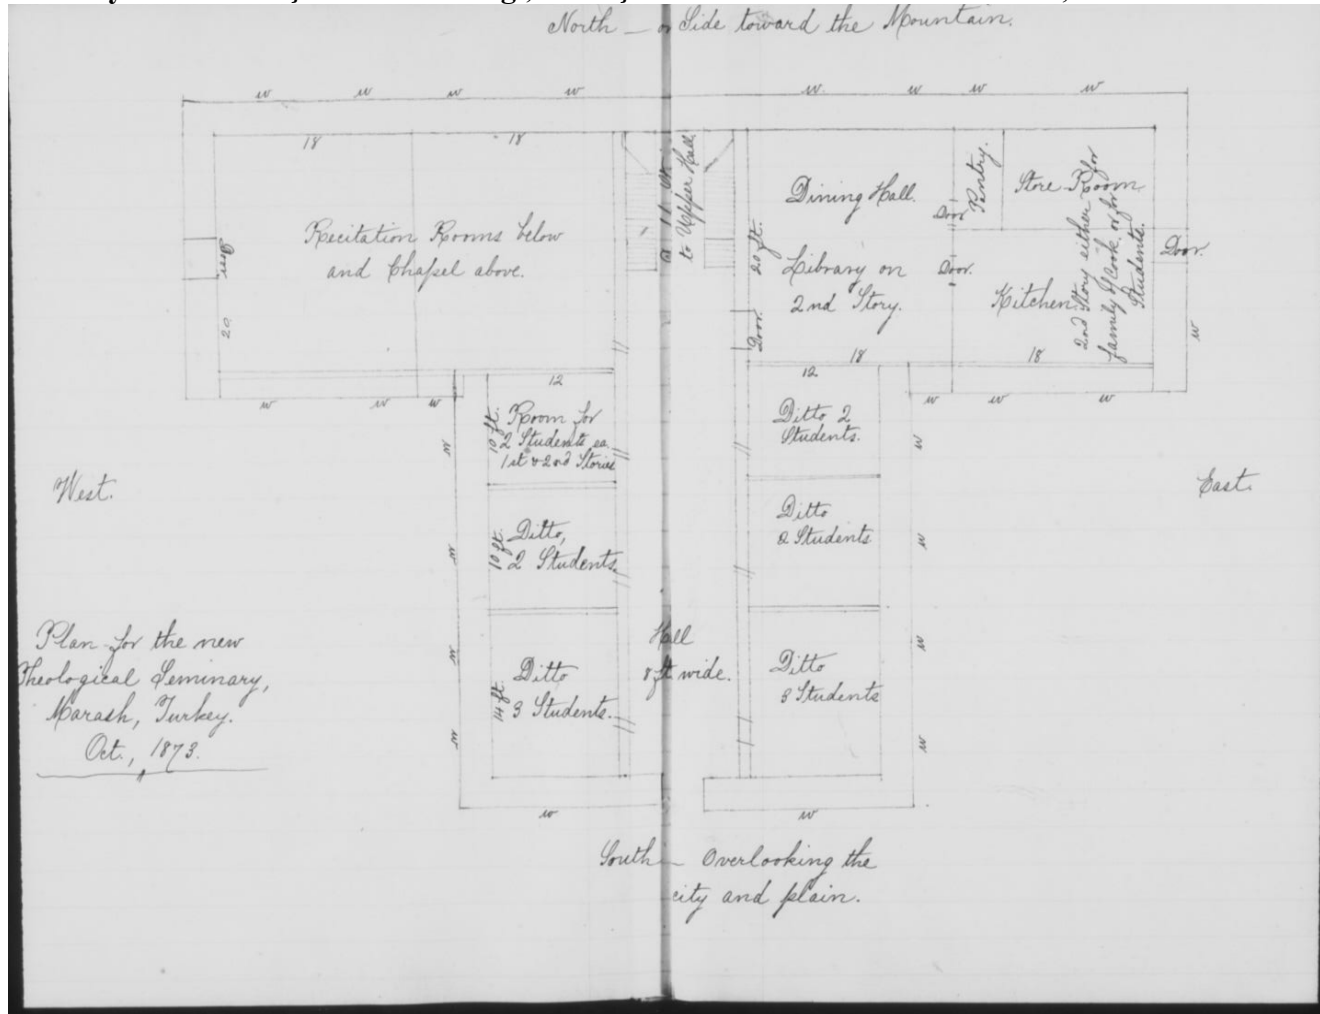 North — or Side toward the Mountain.
w w w w w w w w
18 18
Recitation Rooms below
and Chapel above.
Door
20
to Upper Hall.
Dining Hall.
Library on
2nd Story.
20 ft.
Door
18
Pantry.
Door
Door.
Store Room
Kitchen.
2nd Story either for
family of Cook or for
Students.
18
Door.
w
w w w
w w w
12
10 ft.
Room for
2 Students ea.
1st & 2nd Stories
10 ft.
Ditto,
2 Students.
14 ft.
Ditto
3 Students.
w
w
w
w
12
Ditto 2
Students.
Ditto
2 Students
Ditto
3 Students
w
w
w
w
Hall
8 ft wide.
West.
East.
Plan for the new
Theological Seminary,
Marash, Turkey.
Oct., 1873.
w w
South — Overlooking the
city and plain.